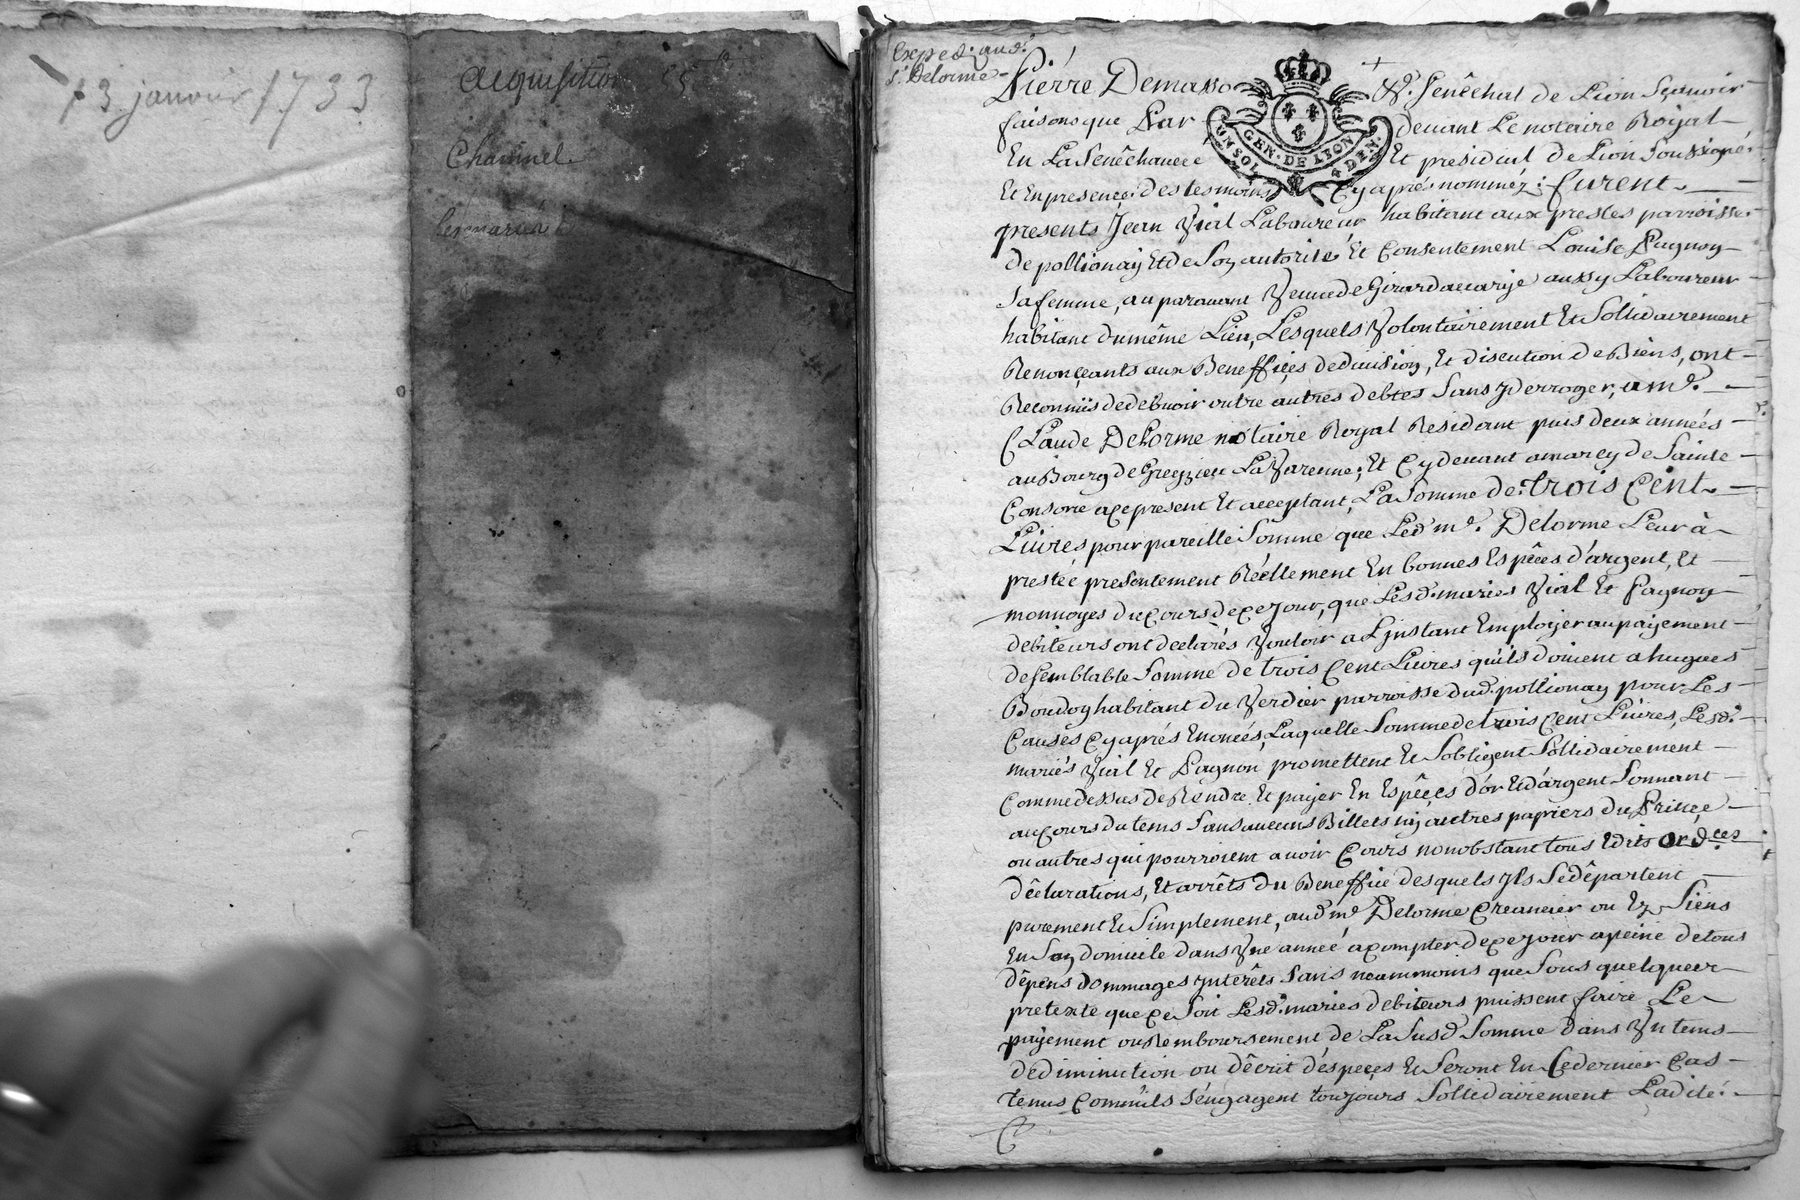 13 janvier 1733
acquisition
Channel
Exped. aud.
s.r Delorme
Pierre Demasso Sr. Senêchal de Lion Sçavoir
faisons que Par devant Le notaire Royal
En La Senêchaucee Et presidial de Lion Soussigné
UN SOL GEN. DE LEON 4 DEN.
Et En presence des tesmoins Cy aprés nomméz : furent
presents Jean Vial Laboureur habitant aux presles parroisse
de pollionaÿ Et de Son autorité Et Consentement Louise Pagnon
Sa femme, au paravant Veuve de Girard aussy Laboureur
habitant du même Lieu, Lesquels Volontairement Et Sollidairement
Renonçants aux Beneffices de division, Et discution de Biens, ont
Reconniis de debvoir outre autres debtes Sans y derroger, a me.
Claude Delorme notaire Royal Residant puis deux années
au Bourg de Grezieu La Varenne, Et Cy devant a marcy de Sainte
Consorce a ce present Et acceptant, La Somme de trois Cent
Livres pour pareille Somme que Led. me. Delorme Leur à
prestée presentement Réellement En bonnes Espêces d'argent, Et
monnoyes du Cours de ce jour, que Lesd. mariés Vial Et Pagnon
debiteurs ont declarés Vouloir a L'jnstant Employer au payement
de Semblable Somme de trois Cent Livres qu'ils doivent a hugues
Boudoy habitant du Verdier parroisse dud. pollionay pour Les
Causes Cy aprés Enoncées, Laquelle Somme de trois Cent Livres, Lesd.
mariés Vial Et Pagnon promettent Et S'obligent Sollidairement
Comme dessus de Rendre Et payer En Espêces d'or Et d'argent Sonnant
au Cours du tems Sans aucuns Billets nÿ autres papiers du Prince
ou autres qui pourroient avoir Cours nonobstant tous Edits ord.ces
dêclarations, Et arrêts du Beneffice desquels jls Se dêpartent
purement Et Simplement, aud. me. Delorme Creancier ou Ez Siens
En Son domicile dans Vne année a compter de ce jour a peine de tous
dêpens dommages jnterêts Sans neammoins que Sous quelque
pretexte que ce Soit Lesd. mariés debiteurs puissent faire Le
payement ou Remboursement de La Susd. Somme dans Vn tems
de diminution ou dêcrit d'espeçes Et Seront En Ce dernier Cas
tenus Comm'ils S'engagent toujours Sollidairement Ladite